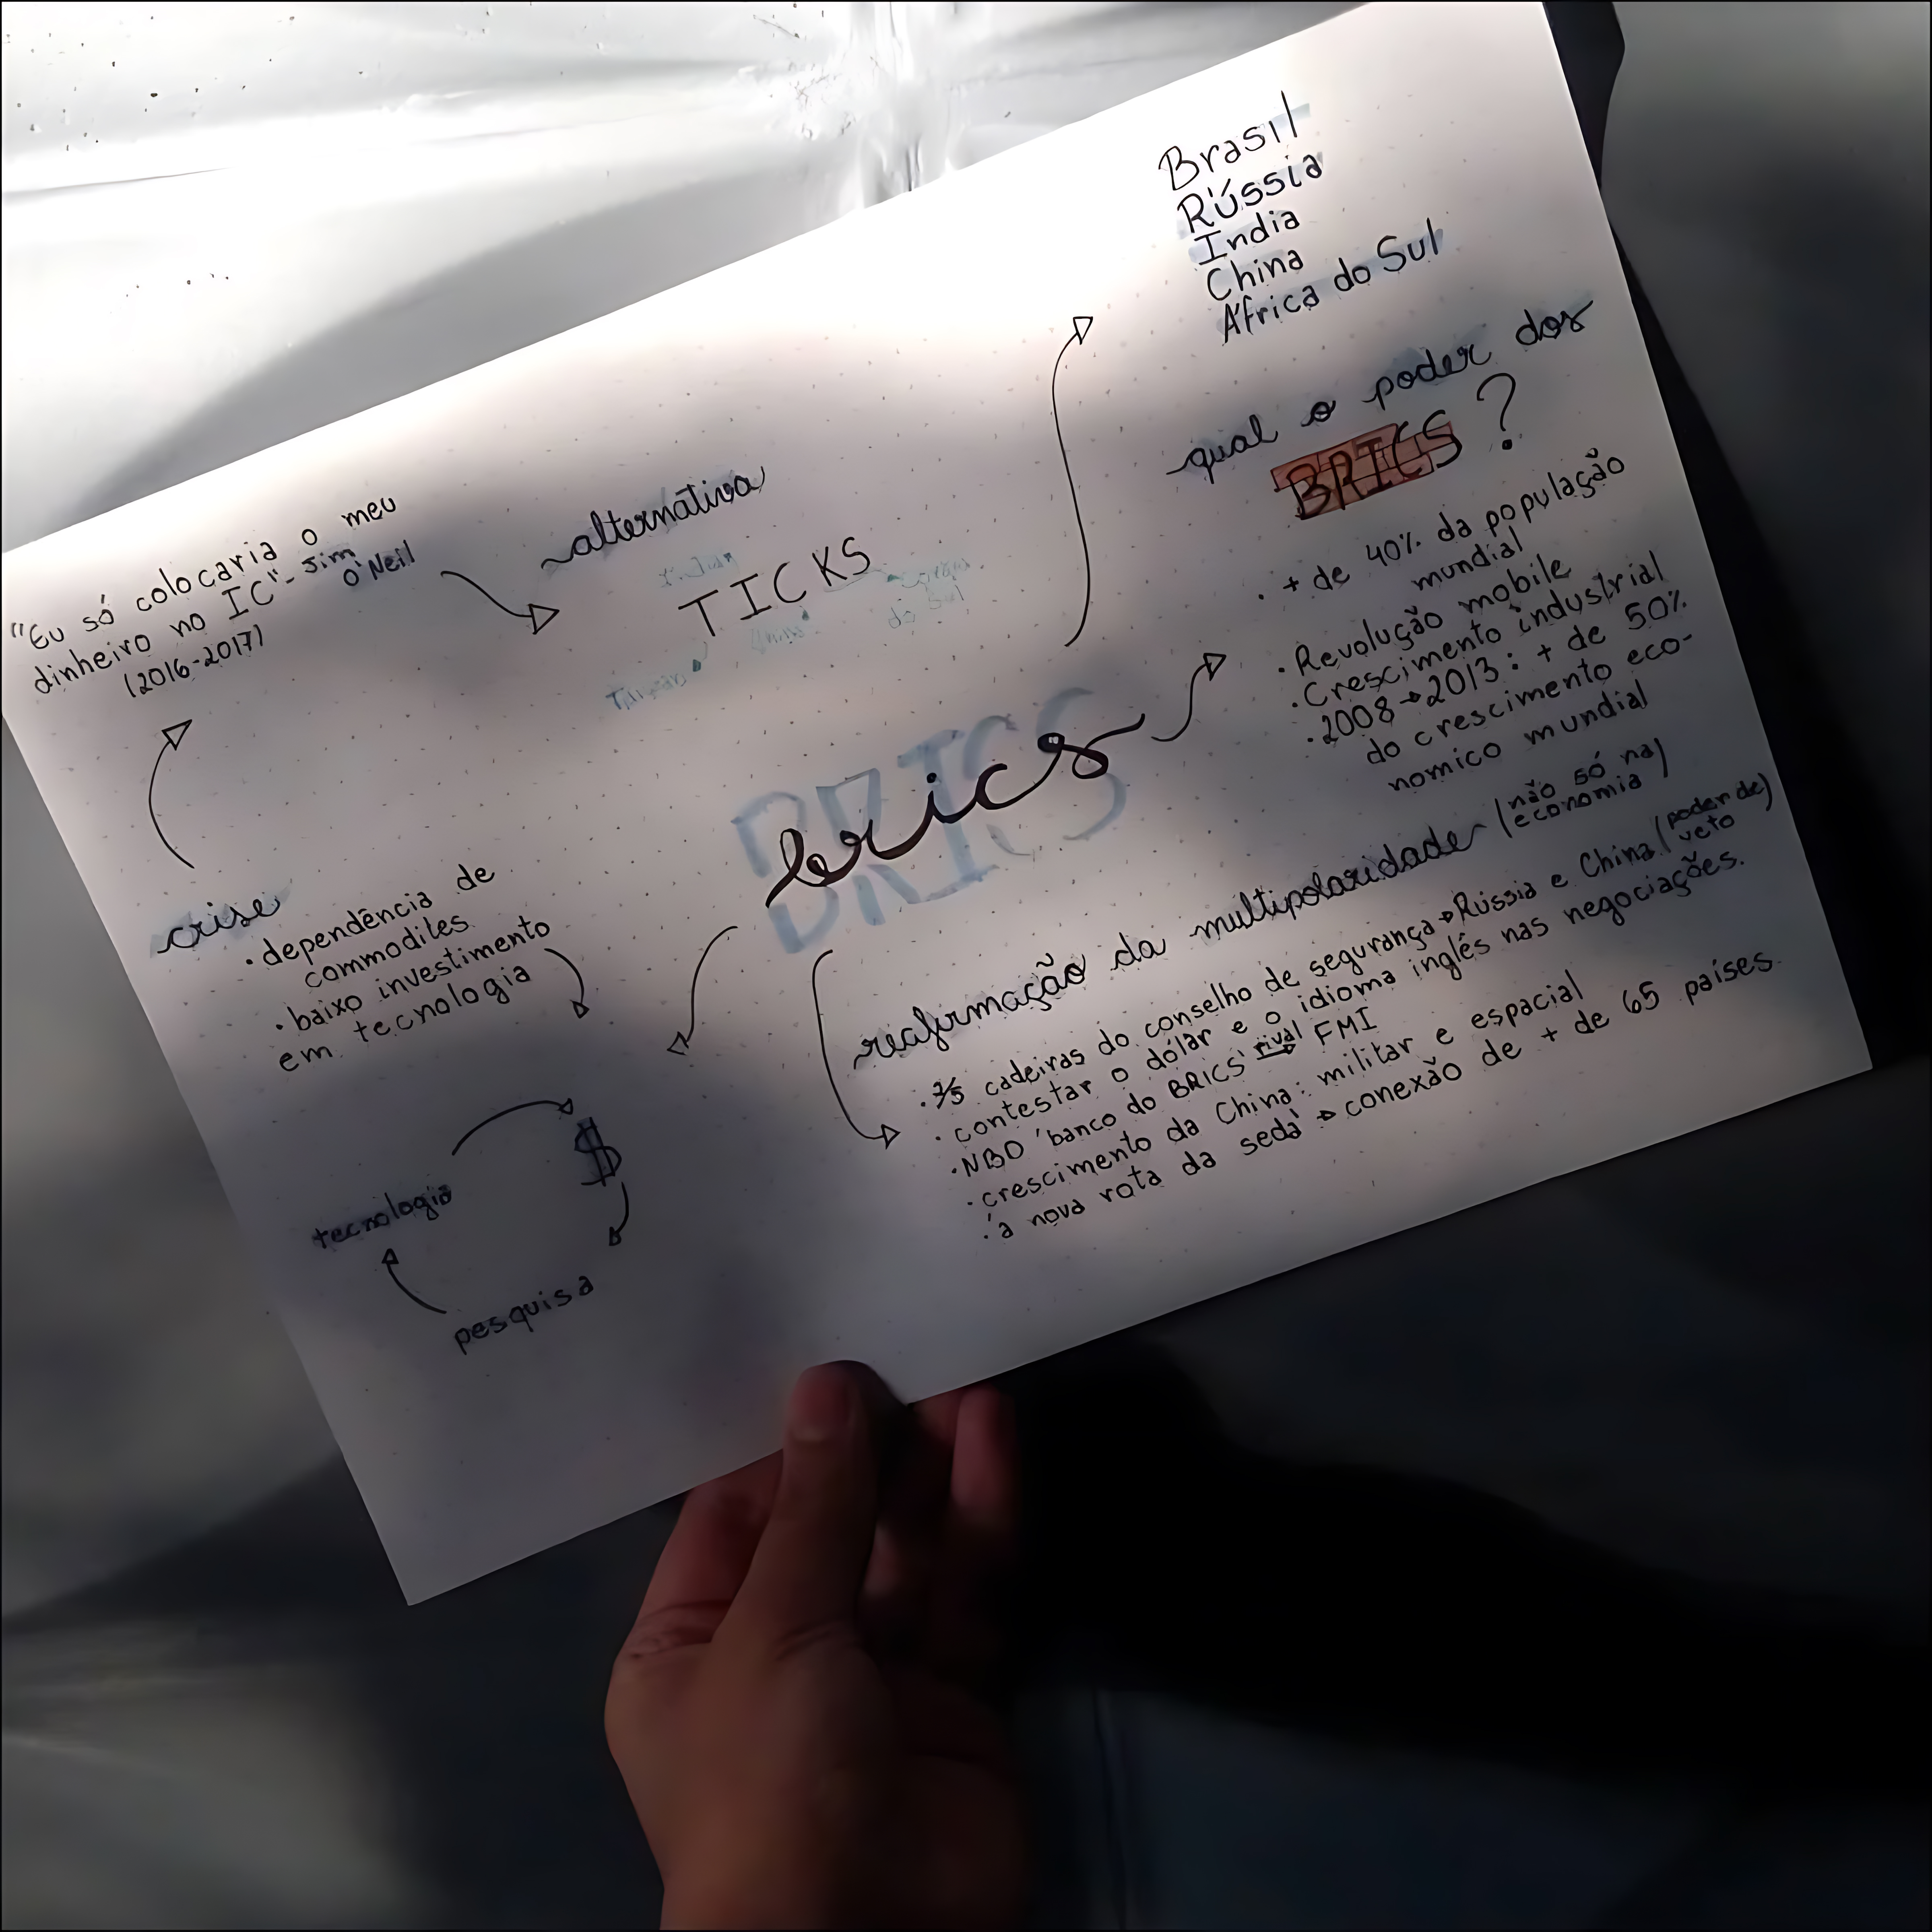 Brasil
Rússia
Índia
China
África do Sul
qual o poder dos
BRICS ?
. + de 40% da população
mundial
. Revolução mobile
. Crescimento industrial
. 2008→2013: + de 50%
do crescimento eco-
nomico mundial
"Eu só colocaria o meu
dinheiro no IC" - Jim
O'Neil
(2016-2017)
alternativa
TICKS
Coreia
do Sul
BRICS
brics
crise
. dependência de
commodites
. baixo investimento
em tecnologia
$
tecnologia
pesquisa
reafirmação da multipolaridade (não só na
economia)
cadeiras do conselho de segurança → Rússia e China (poder de
veto)
. contestar o dólar e o idioma inglês nas negociações.
. NBD 'banco do BRICS' rival → FMI
. crescimento da China: militar e espacial
. 'a nova rota da seda' → conexão de + de 65 países.